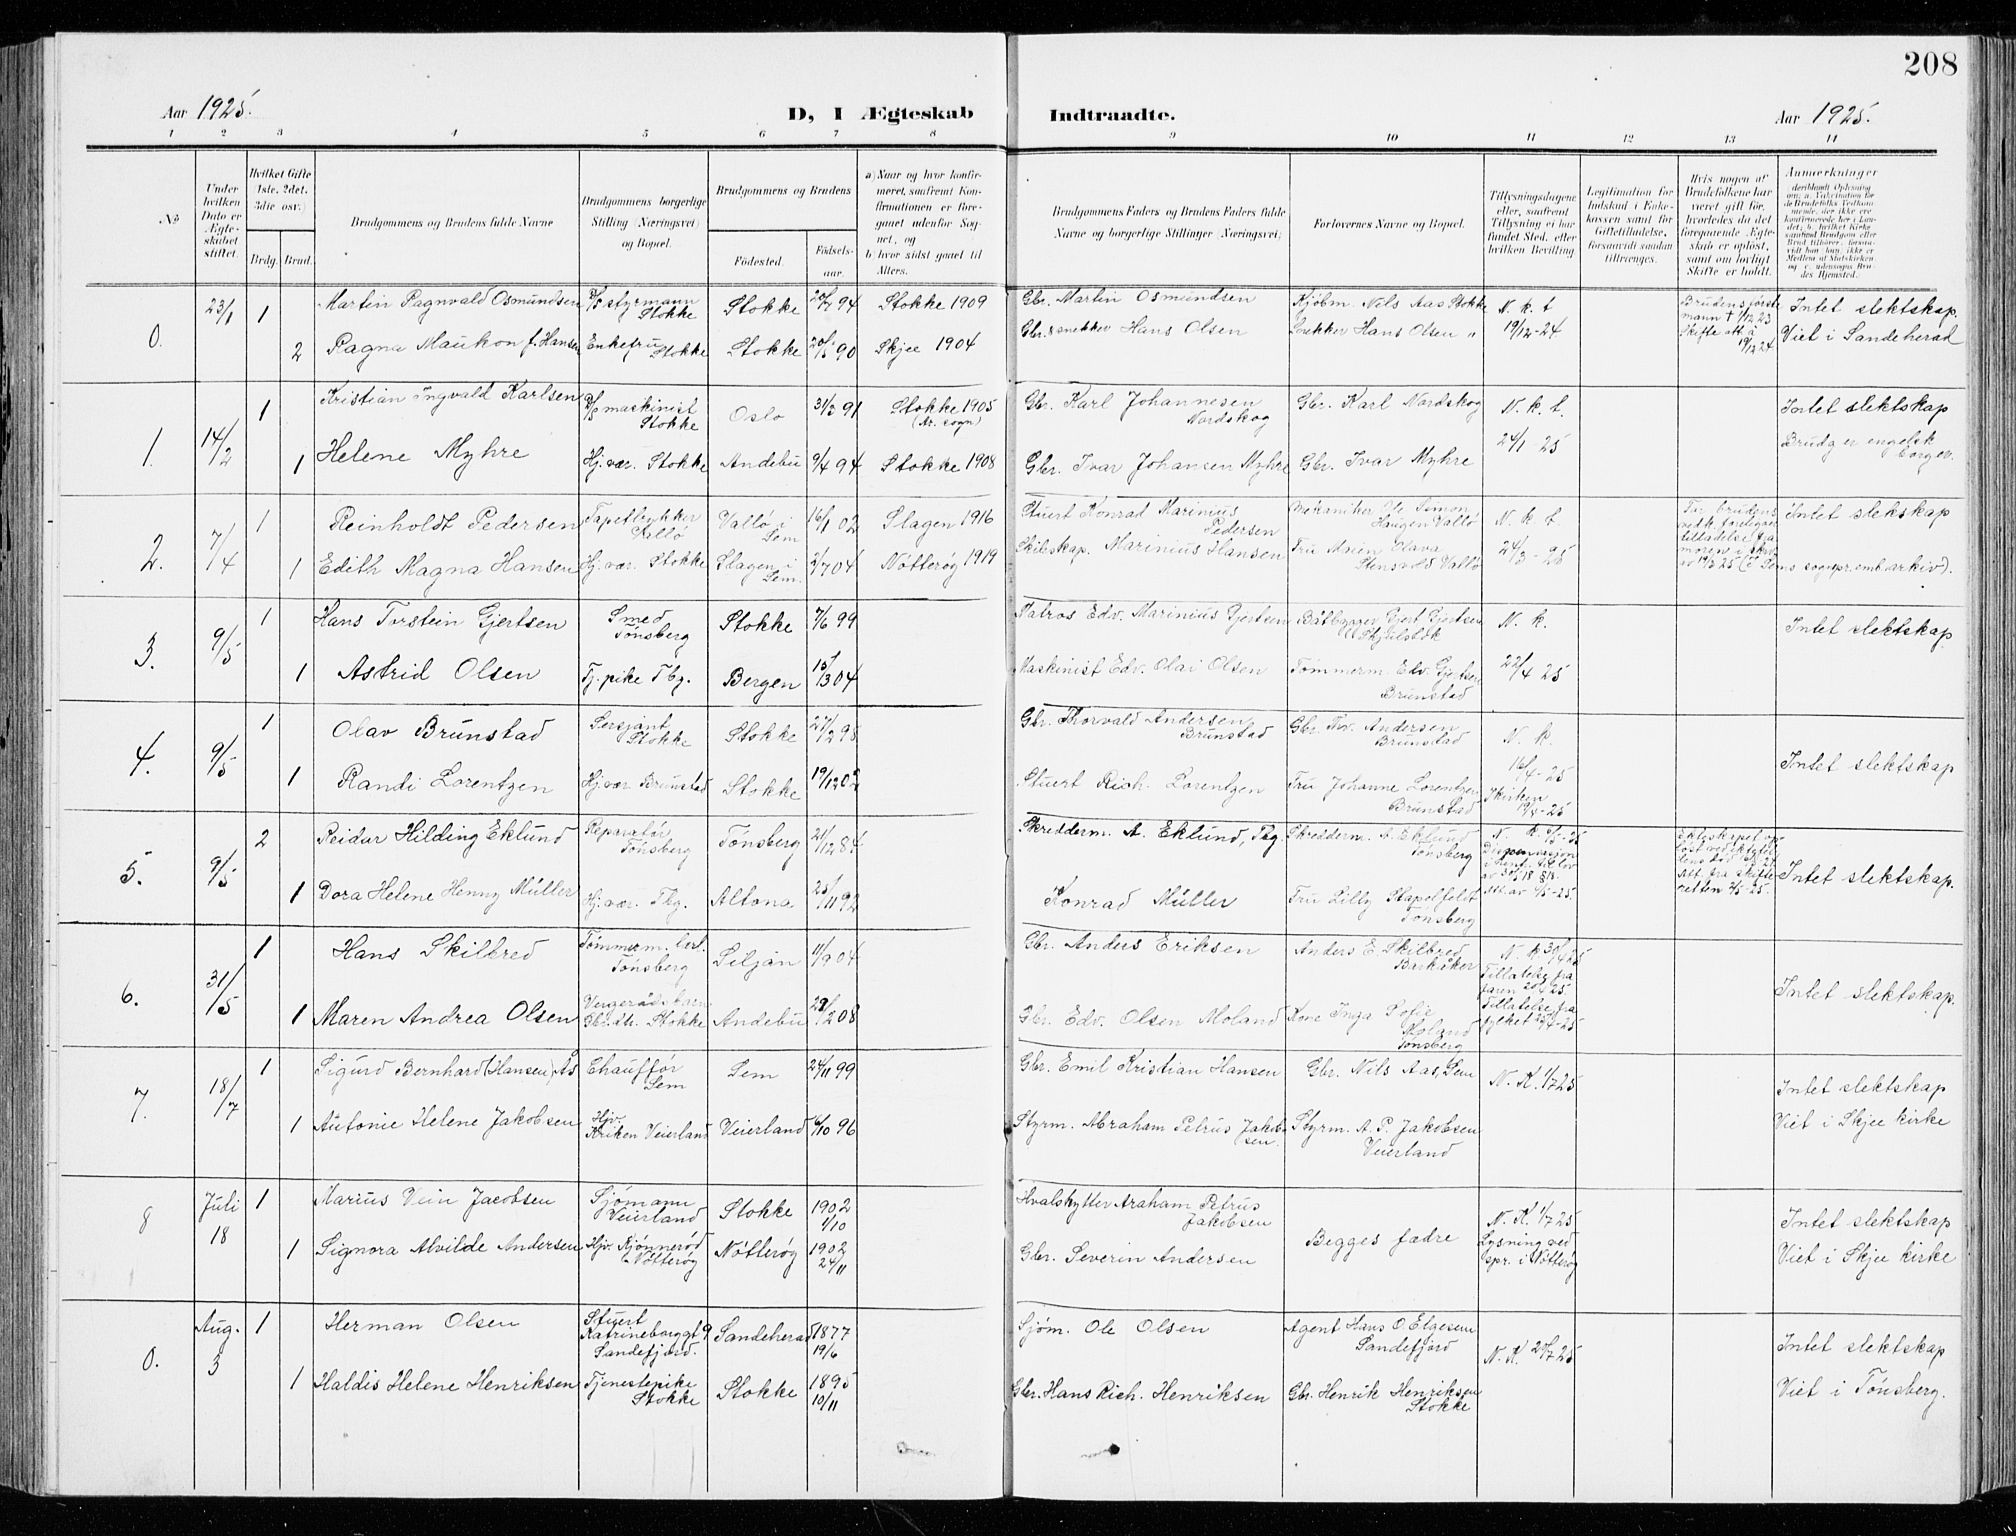 208
Aar 1925.
D, I Ægteskab Indtraadte.
Aar 1925.
1 2 3 4 5 6 7 8 9 10 11 12 13 14
No
Under hvilken Dato er Ægteskabet stiftet.
Hvilket Gifte (1ste, 2det, 3die osv.)
Brdg. Brud.
Brudgommens og Brudens fulde Navne
Brudgommens borgerlige Stilling (Næringsvei) og Bopæl.
Brudgommens og Brudens
Fødested. Fødselsaar.
a) Naar og hvor konfirmeret, saafremt Konfirmationen er foregaaet udenfor Sognet, og
b) hvor sidst gaaet til Alters.
Brudgommens Faders og Brudens Faders fulde Navne og borgerlige Stillinger (Næringsvei)
Forlovernes Navne og Bopæl.
Tillysningsdagene eller, saafremt Tillysning ei har fundet Sted, efter hvilken Bevilling
Legitimation for Indskud i Enkekassen samt for Giftetilladelse, forsaavidt saadan tiltrænges.
Hvis nogen af Brudefolkene har været gift før, hvorledes da det foregaaende Ægteskab er opløst, samt om lovligt Skifte er holdt.
Anmærkninger
deriblandt Oplysning om: a. Vaccination for de Brudefolks Vedkommende, der ikke ere konfirmerede her i Landet; b. hvilket Kirkesamfund Brudgom eller Brud tilhører, forsaavidt han hun, ikke er Medlem af Statskirken og c. udensogns Brudes Hjemsted.
0. 23/1 1 Martin Ragnvald Osmundsen styrmann Stokke Stokke 94 Stokke 1909 Gbr. Martin Osmundsen Kjøbm. Nils Aas Stokke N. k. t 19/12-24 Brudens første mann † 1/12 23 Skifte att. à 19/12 24 Intet slektskap.
2 Ragna Maukon f. Hansen Enkefru Stokke Stokke 90 Skjee 1904 Gbr. snekker Hans Olsen Snekker Hans Olsen " Viet i Sandeherad
1. 14/2 1 Kristian Ingvald Karlsen maskinist Stokke Oslo 31/3 91 Stokke 1905 (Ar. sogn) Gbr. Karl Johannesen Nordskog Gbr. Karl Nordskog N. k. t. 24/1-25 Intet slektskap
1 Helene Myhre Hj. vær. Stokke Andebu 9/4 94 Stokke 1908 Gbr. Ivar Johansen Myhre Gbr. Ivar Myhre Brudg er engelsk borger.
2. 7/4 1 Reinholdt Pedersen Tapettrykker Vallø Vallø i Sem 16/1 02 Slagen 1916 Stuert Konrad Marinius Pedersen Mekaniker Ole Simon Haugen Vallø N. k. t. 24/3-25 For brudens vedk. foreligger tilladelse fra moren i skriv av 19/3 25 (i Sems sognepr.emb.arkiv). Intet slektskap
1 Edith Magna Hansen Hj. vær. Stokke Slagen i Sem 2/7 04 Nøtterøy 1919 Skibskap. Marinius Hansen Fru Maren Olava Stensvold Vallø
3. 9/5 1 Hans Torstein Gjertsen Smed Tønsberg Stokke 7/6 99 Matros Edv. Marinius Gjertsen Båtbygger Gjert Gjertsen N. k. 22/4 25 Intet slektskap.
1 Astrid Olsen Tj. pike Tbg. Bergen 15/3 04 Maskinist Edv. Olai Olsen Tømmerm. Edv. Gjertsen Brunstad
4. 9/5 1 Olav Brunstad Sersjant Stokke Stokke 27/2 98 Gbr. Thorvald Andersen Brunstad Gbr. Tov. Andersen Brunstad N. k. 16/4-25 I kirken 19/4-25 Intet slektskap
1 Randi Lorentzen Hj. vær Brunstad Stokke 19/12 02 Stuert Rich. Lorentzen Fru Johanne Lorentzen Brunstad
5. 9/5 2 Reidar Hilding Eklund Reparatør Tønsberg Tønsberg 21/12 84 Skredderm. A. Eklund, Tbg. Skredderm. A. Eklund Tønsberg N. k. Dispensasjon Intet slektskap.
1 Dora Helene Henny Müller Hj. vær. Tbg. Altona 25/11 92 Konrad Müller Fru Lilly Stapelfeldt Tønsberg
6. 31/5 1 Hans Skilbred Tømmerm. lærl. Tønsberg Siljan 11/9 04 Gbr. Anders Eriksen Anders E. Skilbred Barkåker N. k 30/4 25 Tillatelse fra faren Tillatelse fra fylket Intet slektskap.
1 Maren Andrea Olsen Vergerådsbarn Gbr. dtr. Stokke Andebu 28/2 08 Gbr. Edv. Olsen Moland Kone Inga Sofie Tønsberg
7. 18/7 1 Sigurd Bernhard (Hansen) Ås Chauffør Sem Sem 24/11 99 Gbr. Emil Kristian Hansen Gbr. Nils Aas, Sem N. K. 1/7 25 Intet slektskap
1 Antonie Helene Jakobsen Hjv. Kriken Veierland Veierland 6/10 96 Styrm. Abraham Petrus Jakobsen. Styrm. A. P. Jakobsen Veierland Viet i Skjee kirke
8 Juli 18 1 Marius Vein Jacobsen Sjømann Veierland Stokke 1902 1/10 Hvalskytter Araham Petrus Jakobsen Begges fædre N. K. 1/7 25 Lysning ved spr. i Nøtterøy Intet slektskap
1 Signora Alvilde Andersen Hjv. Kjønnerød Nøtterøy Nøtterøy 1902 24/11 Gbr. Severin Andersen Viet i Skjee kirke
0. Aug. 3 1 Herman Olsen Stuert Katrineborggt 9 Sandefjord. Sandeherad 1877 19/6 Sjøm. Ole Olsen Agent Hans O. Elgesem Sandefjord N. K. 20/7 25 Intet slektskap
1 Haldis Helene Henriksen Tjenestepike Stokke Stokke 1895 10/11 Gbr. Hans Rich. Henriksen Gbr. Henrik Henriksen Stokke Viet i Tønsberg.